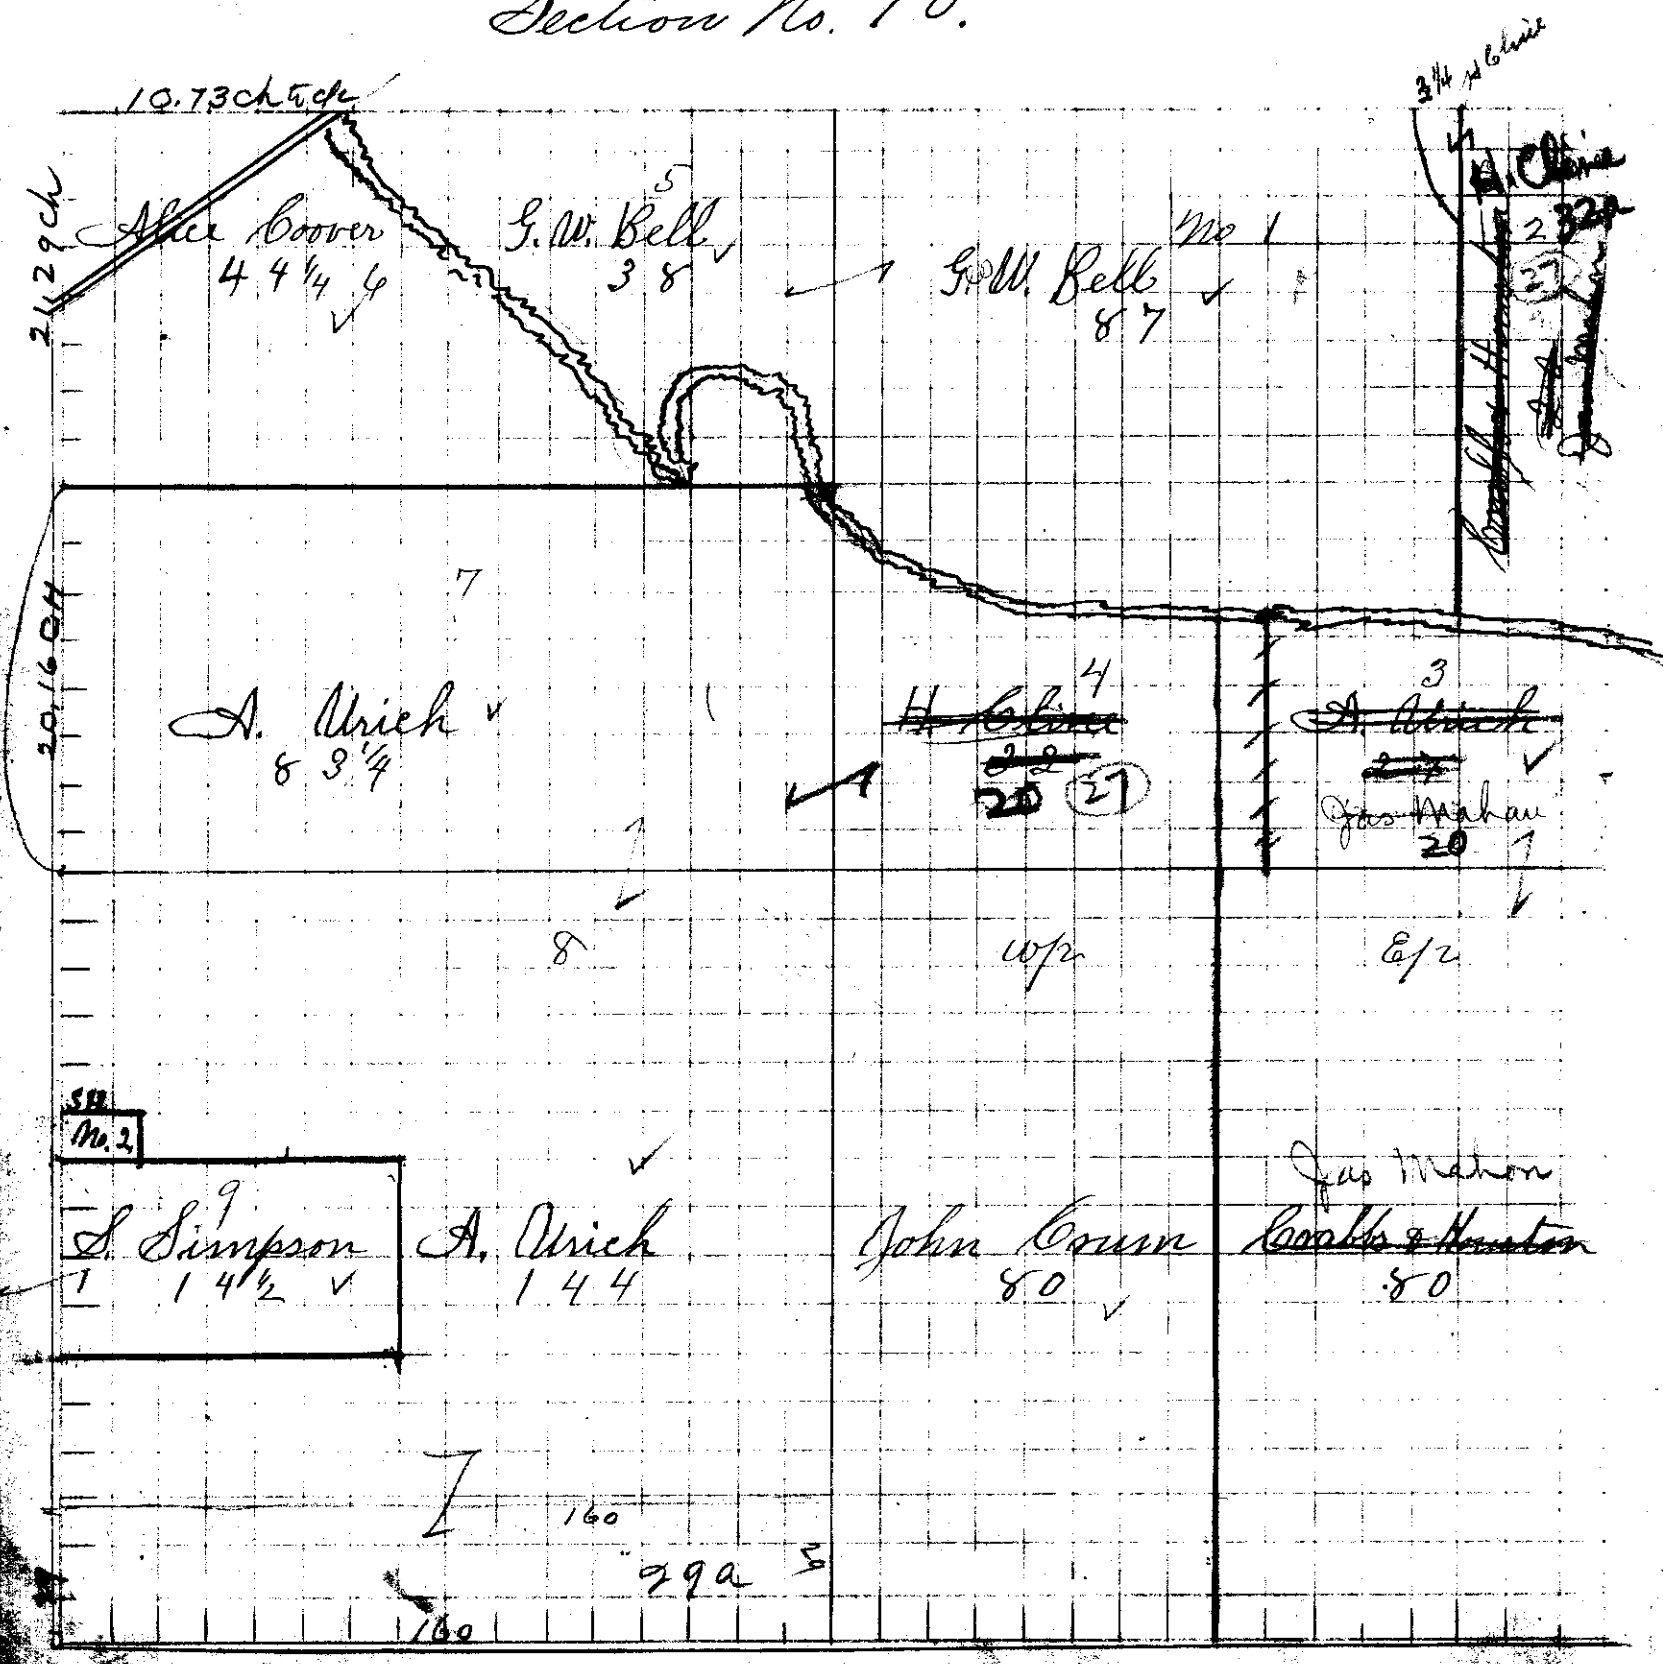 Section No. 10.
10.73 ch
3 1/4
H. Cline
21.29 ch
Alice Coover
44 1/4 6
5
G. W. Bell
38
No 1
G. W. Bell
87
H. Cline
2 32a
27
20.16 CH
7
A. Urich
83 1/4
4
H. Cline
22
20 27
3
A. Urich
27
Jas Mahan
20
8
W/2
E/2
SH
No. 2
9
S. Simpson
14 1/2
A. Urich
144
John Crum
80
Jas Mahon
Coabbs & Houston
80
160
29a
160